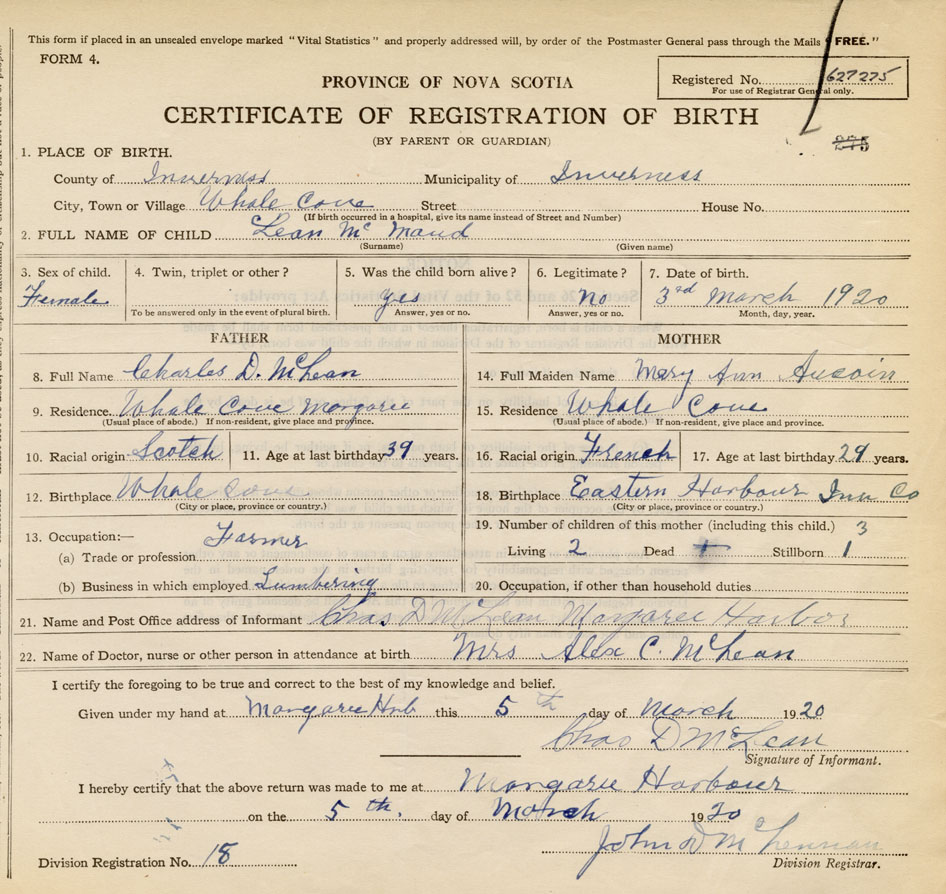 This form if placed in an unsealed envelope marked "Vital Statistics" and properly addressed will, by order of the Postmaster General pass through the Mails "FREE."
FORM 4.
PROVINCE OF NOVA SCOTIA
Registered No. 627275
For use of Registrar General only.
CERTIFICATE OF REGISTRATION OF BIRTH
(BY PARENT OR GUARDIAN)
275
1. PLACE OF BIRTH.
County of Inverness Municipality of Inverness
City, Town or Village Whale Cove Street House No.
(If birth occurred in a hospital, give its name instead of Street and Number)
2. FULL NAME OF CHILD Lean Mc Maud
(Surname) (Given name)
3. Sex of child. 4. Twin, triplet or other? 5. Was the child born alive? 6. Legitimate? 7. Date of birth.
Female yes no 3rd March 1920
To be answered only in the event of plural birth. Answer, yes or no. Answer, yes or no. Month, day, year.
FATHER MOTHER
8. Full Name Charles D. McLean 14. Full Maiden Name Mary Ann Aucoin
9. Residence Whale Cove Margaree 15. Residence Whale Cove
(Usual place of abode.) If non-resident, give place and province. (Usual place of abode.) If non-resident, give place and province.
10. Racial origin Scotch 11. Age at last birthday 39 years. 16. Racial origin French 17. Age at last birthday 29 years.
12. Birthplace Whale Cove 18. Birthplace Eastern Harbour Inv Co
(City or place, province or country.) (City or place, province or country.)
13. Occupation:— 19. Number of children of this mother (including this child.) 3
(a) Trade or profession Farmer Living 2 Dead Stillborn 1
(b) Business in which employed Lumbering 20. Occupation, if other than household duties
21. Name and Post Office address of Informant Chas D McLean Margaree Harbor
22. Name of Doctor, nurse or other person in attendance at birth Mrs Alex C. McLean
I certify the foregoing to be true and correct to the best of my knowledge and belief.
Given under my hand at Margaree Harb this 5th day of March 1920
Chas D McLean
Signature of Informant.
I hereby certify that the above return was made to me at Margaree Harbour
on the 5th. day of March 1920
John D McLennan
Division Registration No. 18 Division Registrar.